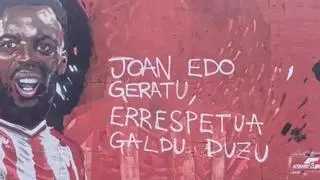 JOAN EDO
GERATU,
ERRESPETUA
GALDU DUZU